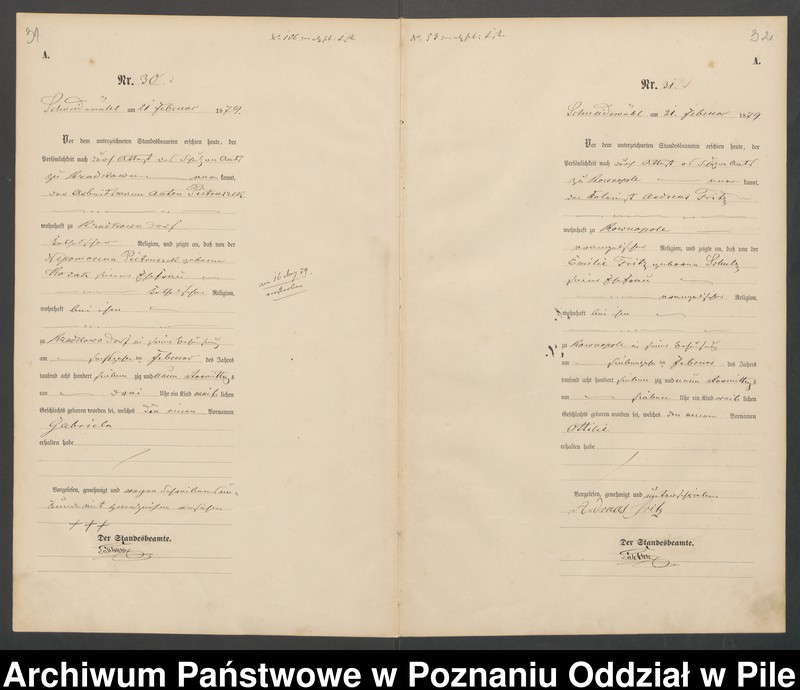 31
A.
Nr. 30.
Schneidemühl am 21 Februar 1879.
Vor dem unterzeichneten Standesbeamten erschien heute, der
Persönlichkeit nach durch Attest des
zu Kradkowo kannt,
der Arbeitsmann Anton Pietruszek
wohnhaft zu Kradkowo Dorf
katholischer Religion, und zeigte an, daß von der
Nepomocena Pietruszek geborene
Kozak seiner Ehefrau
katholischer Religion,
wohnhaft bei ihm
zu Kradkowo Dorf in seiner Behausung
am Februar des Jahres
tausend acht hundert sieben zig und neun Vormittags
um drei Uhr ein Kind weiblichen
Geschlechts geboren worden sei, welches den einen Vornamen
Gabriela
erhalten habe
Vorgelesen, genehmigt und wegen Schreibensun-
kunde mit Handzeichen versehen
+++
Der Standesbeamte.
am 16 Aug 79.
32
A.
Nr. 31.
Schneidemühl am 21. Februar 1879
Vor dem unterzeichneten Standesbeamten erschien heute, der
Persönlichkeit nach durch Attest
zu Rownopole kannt,
der Andreas Fritz
wohnhaft zu Rownopole
evangelischer Religion, und zeigte an, daß von der
Emilie Fritz geborene Schulz
seiner Ehefrau
evangelischer Religion,
wohnhaft bei ihm
zu Rownopole in seiner Behausung
am siebzehnten Februar des Jahres
tausend acht hundert sieben zig und neun Vormittags
um sieben Uhr ein Kind weiblichen
Geschlechts geboren worden sei, welches den einen Vornamen
Ottilie
erhalten habe
Vorgelesen, genehmigt und unterschrieben
Andreas Fritz
Der Standesbeamte.
Archiwum Państwowe w Poznaniu Oddział w Pile